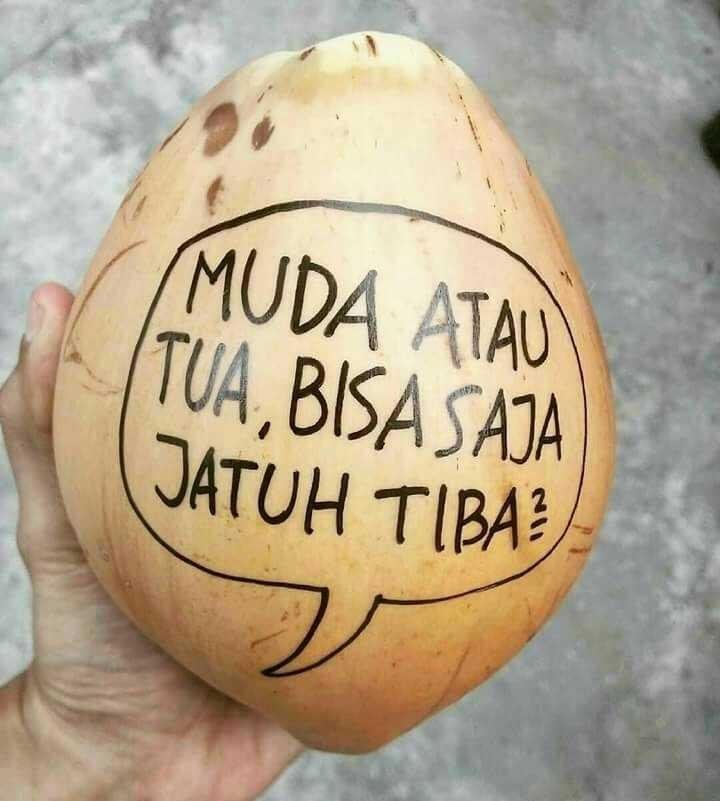 MUDA ATAU
TUA, BISA SAJA
JATUH TIBA²